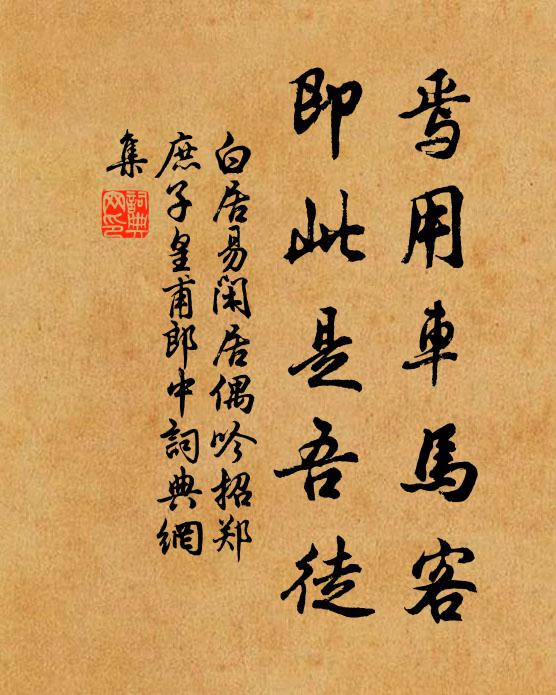 焉用車馬客
即此是吾徒
白居易閑居偶吟招郑
庶子皇甫郎中詞典網
集
詞典网印